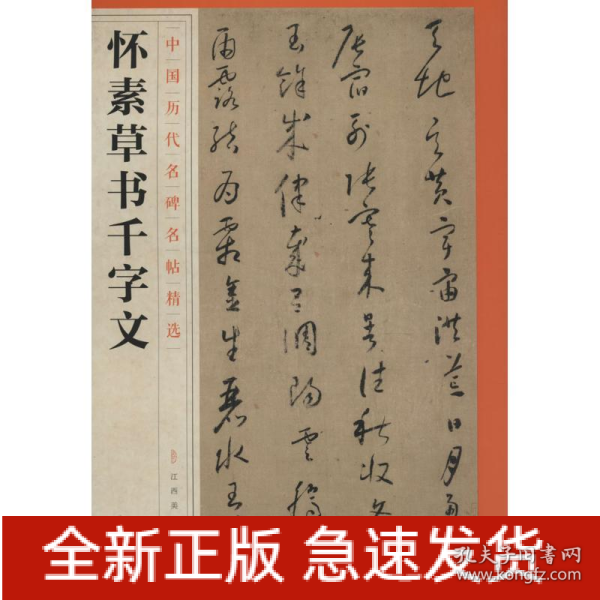 怀素草书千字文
中国历代名碑名帖精选
天地玄黃宇宙洪荒日月盈
辰宿列張寒來暑往秋收冬
餘成律歲呂調陽雲騰
雨露結為霜金生麗水玉
江西美
全新正版 急速发货
孔夫子旧书网
www.kongfz.com